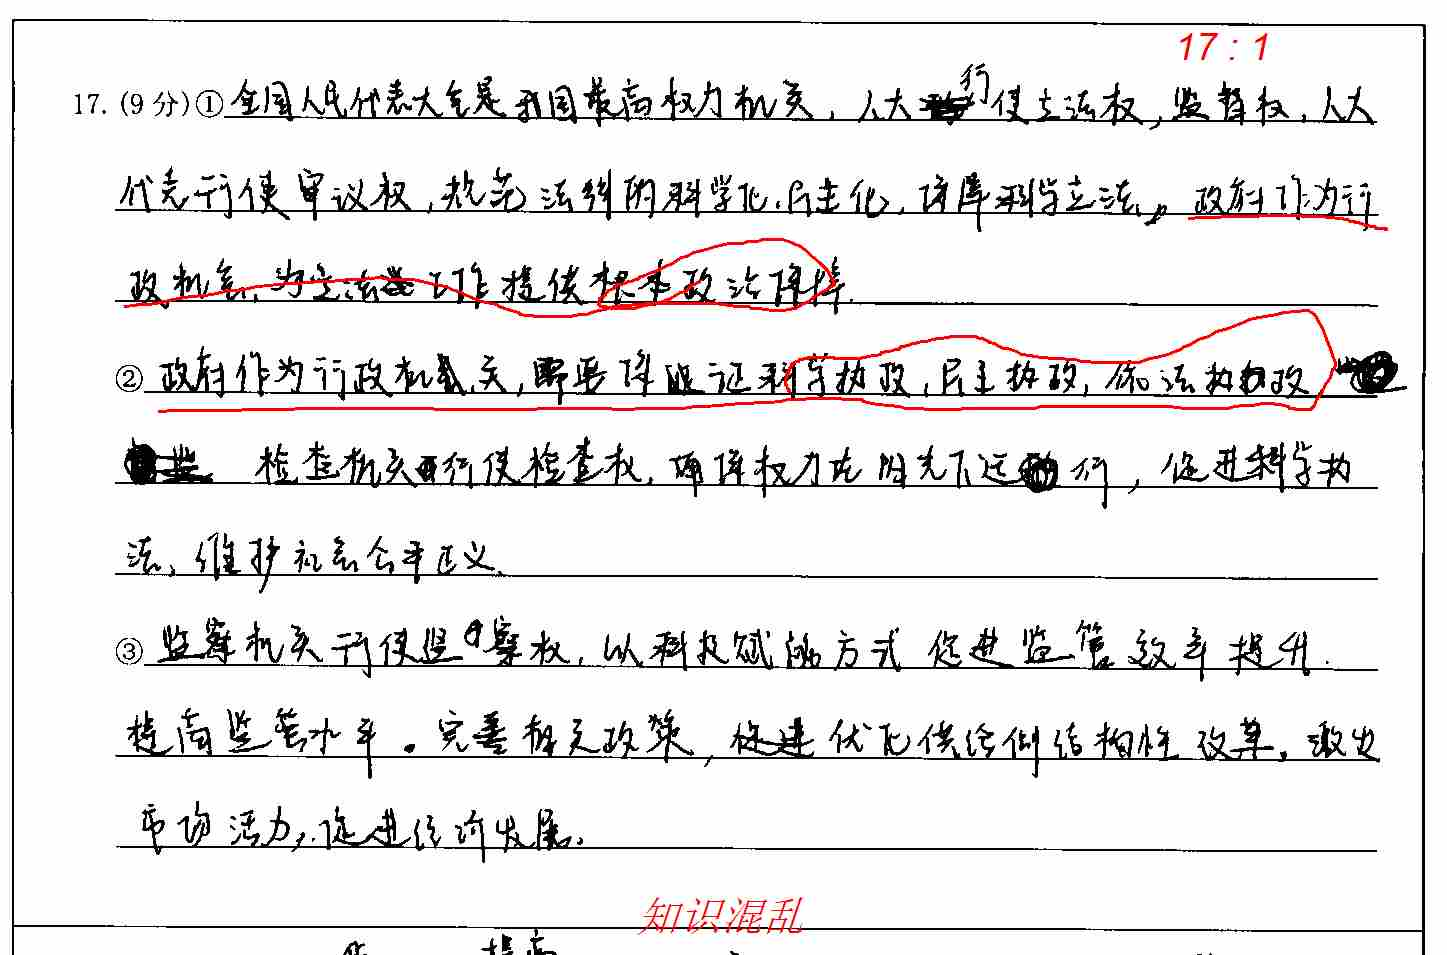 17 : 1
17. (9 分) ① 全国人民代表大会是我国最高权力机关，人大行使立法权，监督权，人大
代表行使审议权，规范法律的科学化.民主化，保障科学立法。政府作为行
政机关，为立法工作提供根本政治保障.
② 政府作为行政机关，需要保证科学执政，民主执政，依法执政
检查机关行使检查权，确保权力在阳光下运行，促进科学执
法，维护社会公平正义.
③ 监察机关行使监察权，以科技赋能方式促进监管效率提升.
提高监管水平。完善相关政策，促进优化供给侧结构性改革，激发
市场活力，促进经济发展。
知识混乱
提高